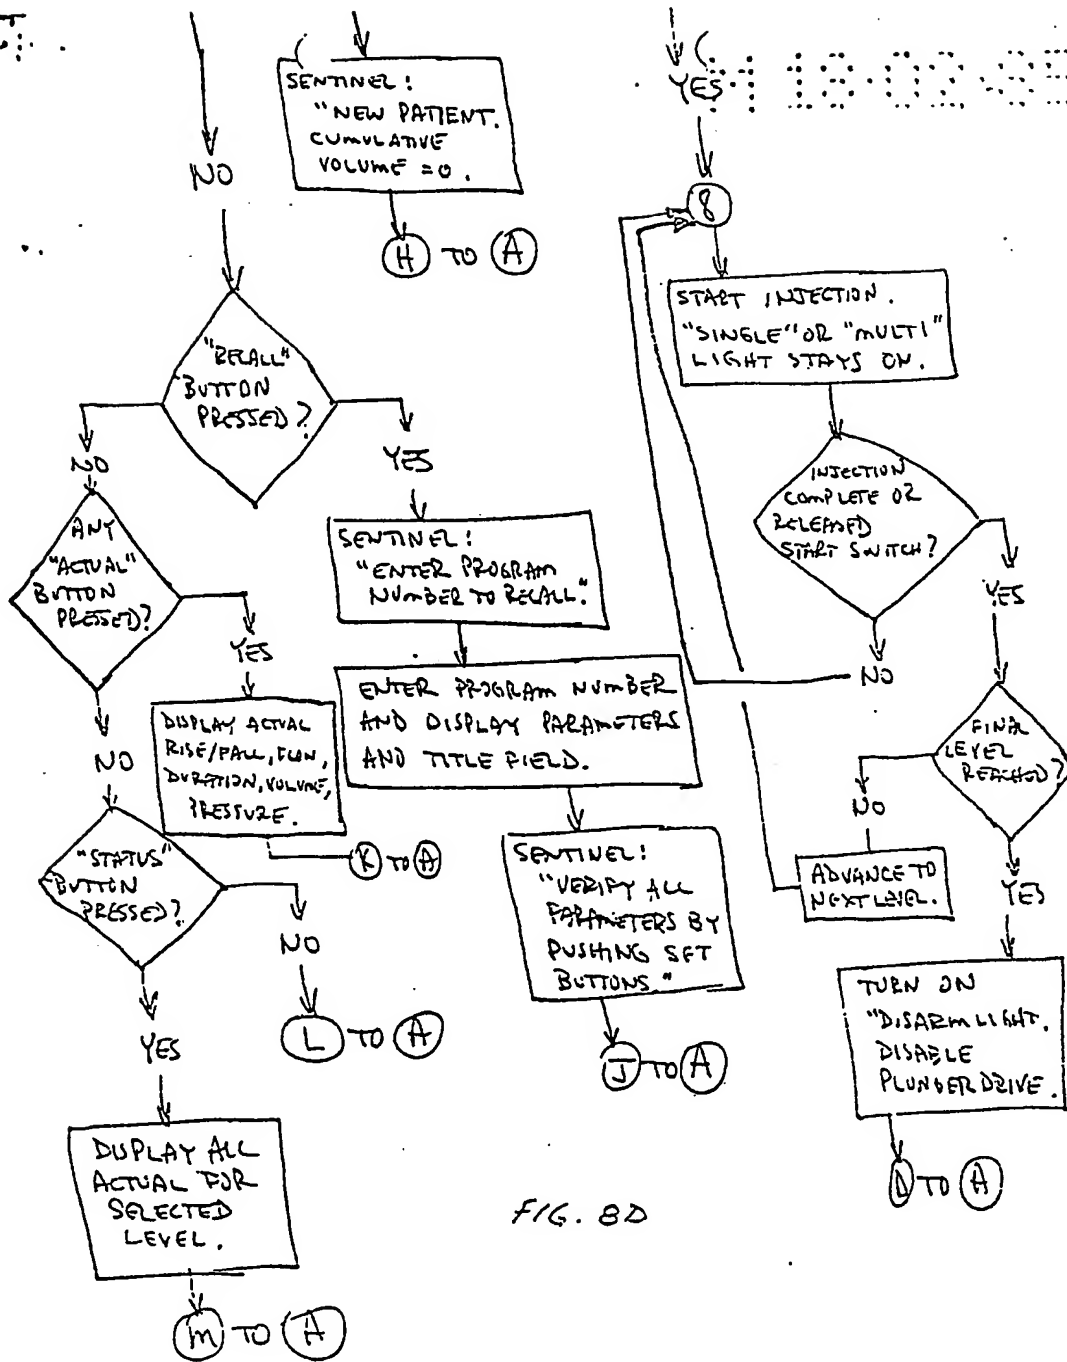 NO
SENTINEL:
"NEW PATIENT.
CUMULATIVE
VOLUME = 0.
H TO A
"RECALL"
BUTTON
PRESSED?
NO
YES
ANY
"ACTUAL"
BUTTON
PRESSED?
YES
NO
DISPLAY ACTUAL
RISE/FALL, FLOW,
DURATION, VOLUME,
PRESSURE.
K TO A
"STATUS"
BUTTON
PRESSED?
NO
L TO A
YES
DISPLAY ALL
ACTUAL FOR
SELECTED
LEVEL.
M TO A
SENTINEL:
"ENTER PROGRAM
NUMBER TO RECALL."
ENTER PROGRAM NUMBER
AND DISPLAY PARAMETERS
AND TITLE FIELD.
SENTINEL:
"VERIFY ALL
PARAMETERS BY
PUSHING SET
BUTTONS."
J TO A
YES
8
START INJECTION.
"SINGLE" OR "MULTI"
LIGHT STAYS ON.
INJECTION
COMPLETE OR
RELEASED
START SWITCH?
YES
NO
FINAL
LEVEL
REACHED?
NO
ADVANCE TO
NEXT LEVEL.
YES
TURN ON
"DISARM LIGHT.
DISABLE
PLUNGER DRIVE.
D TO A
FIG. 8D